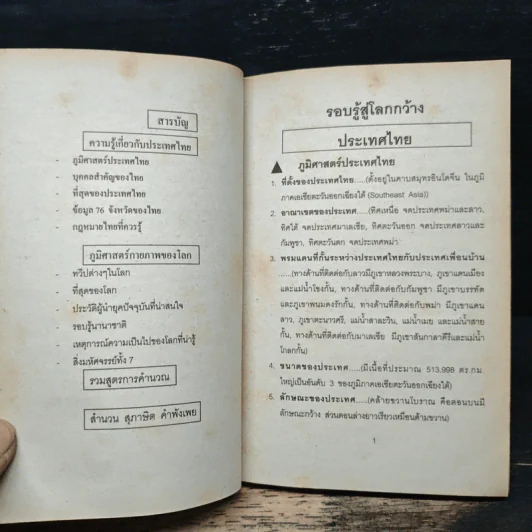 สารบัญ
ความรู้เกี่ยวกับประเทศไทย
- ภูมิศาสตร์ประเทศไทย
- บุคคลสำคัญของไทย
- ที่สุดของประเทศไทย
- ข้อมูล 76 จังหวัดของไทย
- กฎหมายไทยที่ควรรู้
ภูมิศาสตร์กายภาพของโลก
- ทวีปต่างๆในโลก
- ที่สุดของโลก
- ประวัติผู้นำยุคปัจจุบันที่น่าสนใจ
- รอบรู้นานาชาติ
- เหตุการณ์ความเป็นไปของโลกที่น่ารู้
- สิ่งมหัศจรรย์ทั้ง 7
รวมสูตรการคำนวณ
สำนวน สุภาษิต คำพังเพย
รอบรู้สู่โลกกว้าง
ประเทศไทย
ภูมิศาสตร์ประเทศไทย
1. ที่ตั้งของประเทศไทย.....(ตั้งอยู่ในคาบสมุทรอินโดจีน ในภูมิ
ภาคเอเชียตะวันออกเฉียงใต้ (Southeast Asia))
2. อาณาเขตของประเทศ.....(ทิศเหนือ จดประเทศพม่าและลาว,
ทิศใต้ จดประเทศมาเลเซีย, ทิศตะวันออก จดประเทศลาวและ
กัมพูชา, ทิศตะวันตก จดประเทศพม่า
3. พรมแดนที่กั้นระหว่างประเทศไทยกับประเทศเพื่อนบ้าน
.....(ทางด้านที่ติดต่อกับลาวมีภูเขาหลวงพระบาง, ภูเขาแดนเมือง
และแม่น้ำโขงกั้น, ทางด้านที่ติดต่อกับกัมพูชา มีภูเขาบรรทัด
และภูเขาพนมดงรักกั้น, ทางด้านที่ติดต่อกับพม่า มีภูเขาแดน
ลาว, ภูเขาตะนาวศรี, แม่น้ำสาละวิน, แม่น้ำเมย และแม่น้ำสาย
กั้น, ทางด้านที่ติดต่อกับมาเลเซีย มีภูเขาสันกาลาคีรีและแม่น้ำ
โกลกกั้น)
4. ขนาดของประเทศ.....(มีเนื้อที่ประมาณ 513,998 ตร.กม.
ใหญ่เป็นอันดับ 3 ของภูมิภาคเอเชียตะวันออกเฉียงใต้)
5. ลักษณะของประเทศ.....(คล้ายขวานโบราณ คือตอนบนมี
ลักษณะกว้าง ส่วนตอนล่างยาวเรียวเหมือนด้ามขวาน)
1